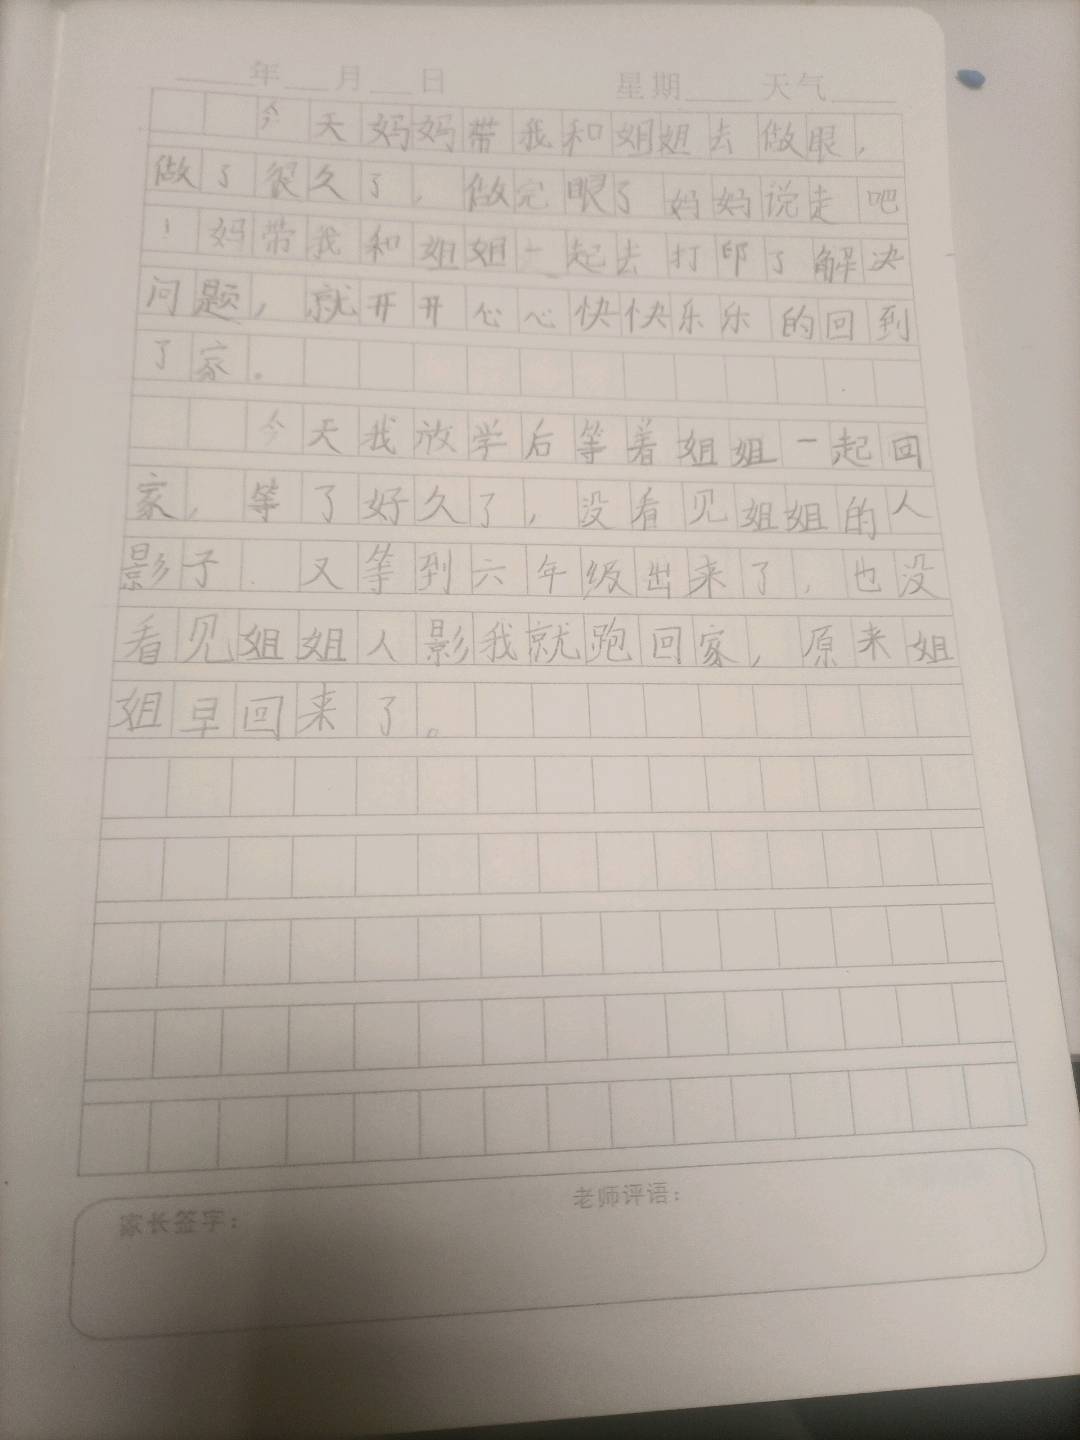 年 月 日 星期 天气
今天妈妈带我和姐姐去做眼,
做了很久了,做完眼了妈妈说走吧
!妈带我和姐姐一起去打印了解决
问题,就开开心心快快乐乐的回到
了家。
今天我放学后等着姐姐一起回
家,等了好久了,没看见姐姐的人
影子.又等到六年级出来了,也没
看见姐姐人影我就跑回家,原来姐
姐早回来了。
家长签字: 老师评语: